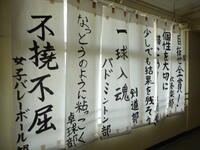 目指せ金賞!
個性を大切に
少しでも結果を残そう
剣道部
一球入魂
バドミントン部
なっとうのように粘っこく
卓球部
不撓不屈
女子バレーボール部